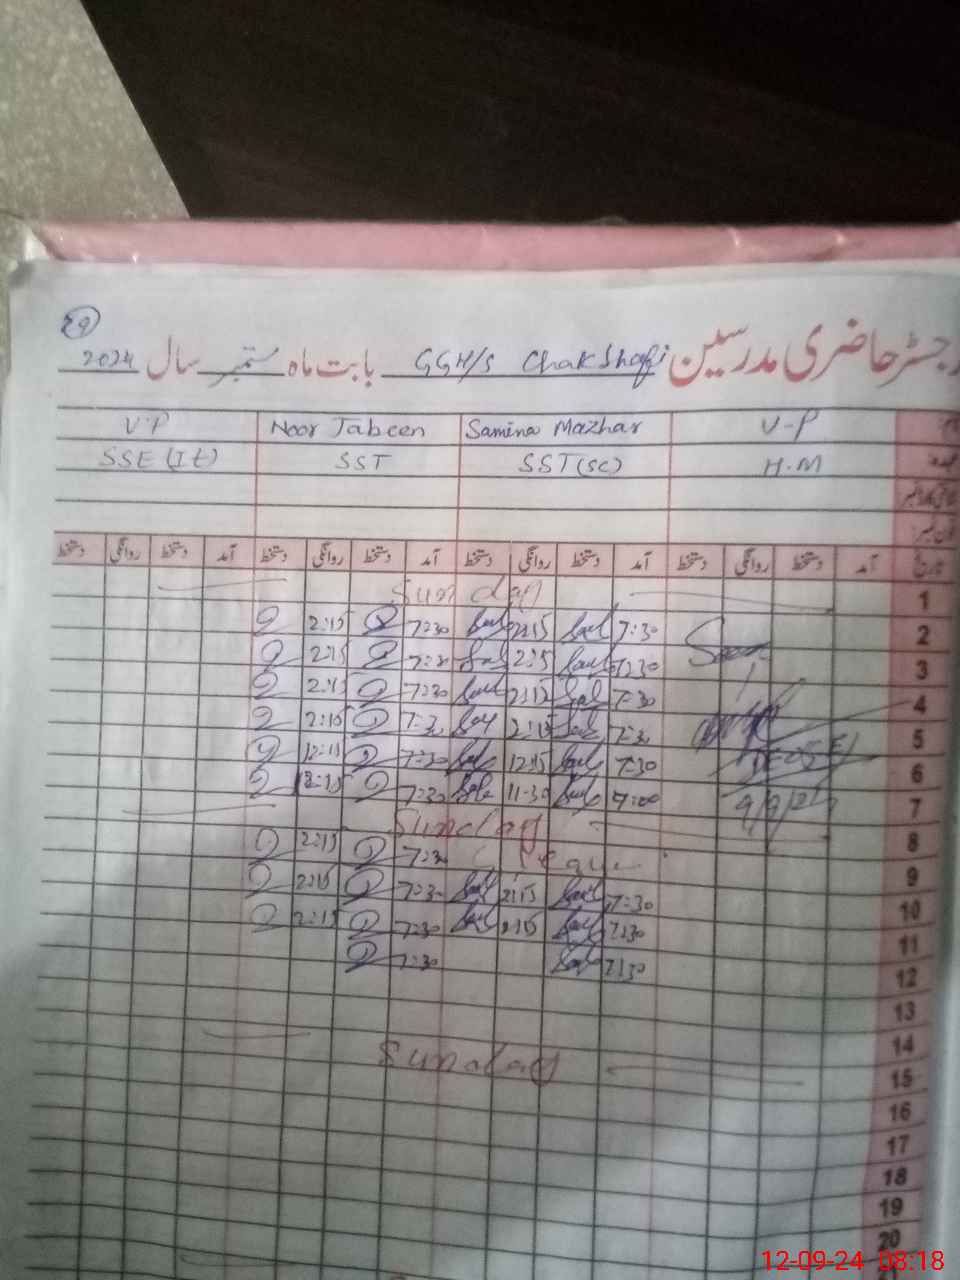 رجسٹر حاضری مدرسین GGH/S Chak Shafi بابت ماہ ستمبر سال 2024
V-P Samina Mazhar Noor Jabeen V.P
H.M SST(SC) SST SSE (It)
تاریخ آمد دستخط روانگی دستخط آمد دستخط روانگی دستخط آمد دستخط روانگی دستخط آمد دستخط روانگی دستخط
1 Sunday
2 7:30 2:15 7:30 2:15
3 7:30 2:15 7:30 2:15
4 7:30 2:15 7:30 2:15
5 7:30 2:15 7:30 2:15
6 7:30 12:15 7:30 12:15
7 7:00 11:30 7:30
9/9/24
8 Sunday
9 7:30 2:15
10 7:30 2:15 7:30 2:15
11 7:30 2:15 7:30 2:15
12 7:30 7:30
13
14
15 Sunday
16
17
18
19
20
12-09-24 08:18